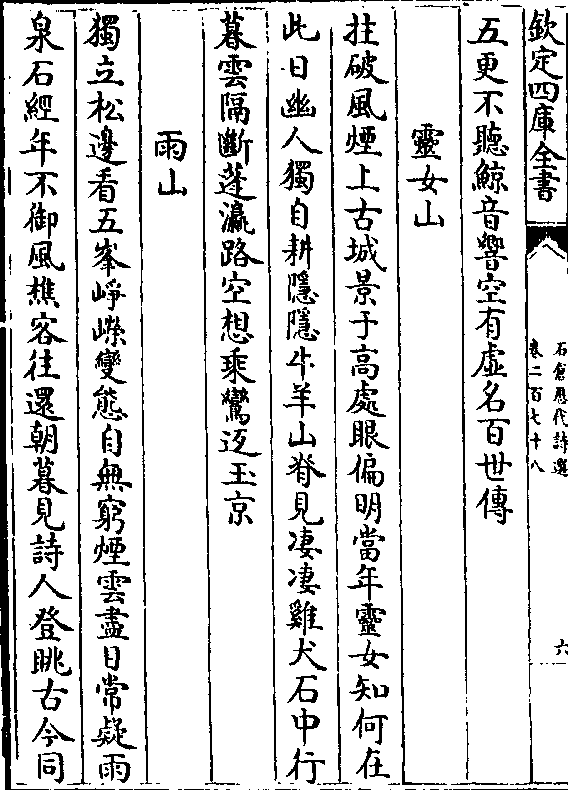 欽定四庫全書
石倉歷代詩選
卷二百七十八
六
五更不聽鯨音響空有虛名百世傳
靈女山
拄破風煙上古城景于高處眼偏明當年靈女知何在
此日幽人獨自耕隱隱牛羊山脊見凄凄雞犬石中行
暮雲隔斷蓬瀛路空想乘鸞返玉京
雨山
獨立松邊看五峯崢嶸變態自無窮煙雲盡日常疑雨
泉石經年不御風樵客往還朝暮見詩人登眺古今同